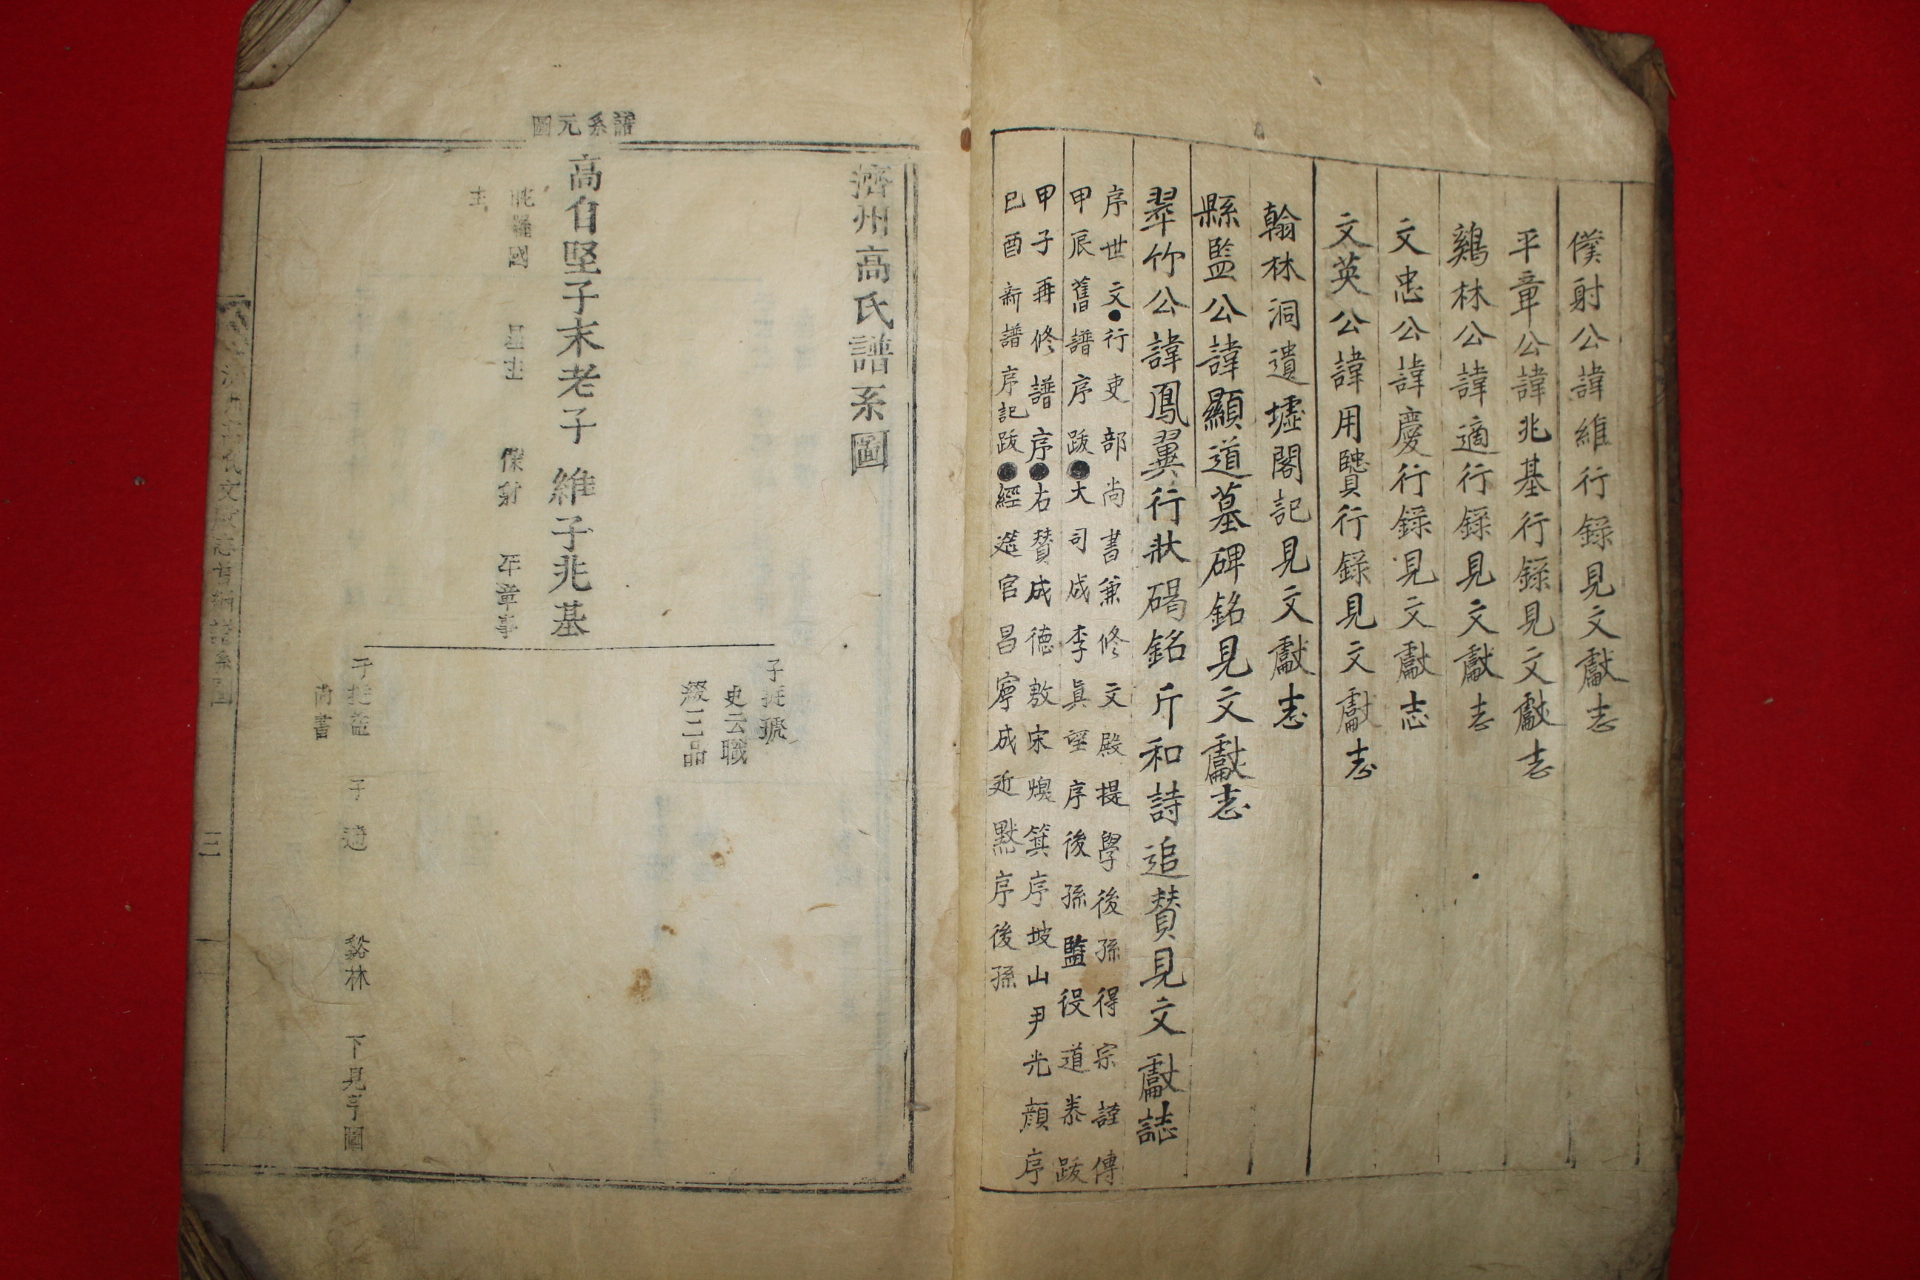 僕射公諱維行錄見文獻志
平章公諱兆基行錄見文獻志
鷄林公諱適行錄見文獻志
文忠公諱慶行錄見文獻志
文英公諱用賢行錄見文獻志
翰林洞遺墟閣記見文獻志
縣監公諱顯道墓碑銘見文獻志
翠竹公諱鳳翼行狀碣銘斤和詩追賛見文獻誌
序世文●行吏部尚書兼修文殿提學後孫得宗謹傳
甲辰舊譜序跋●大司成李眞望序後孫監役道泰跋
甲子再修譜序●右賛成德敷宋煥箕序坡山尹光顔序
己酉新譜序記跋●經筵官昌寧成近默序後孫
濟州高氏譜系圖
譜系元圖
高自堅子末老子維子兆基
國
星主
僕射
平章事
主
子挺
史云職
級三品
子挺益
尚書
子適
谿林
下見亨圖
三